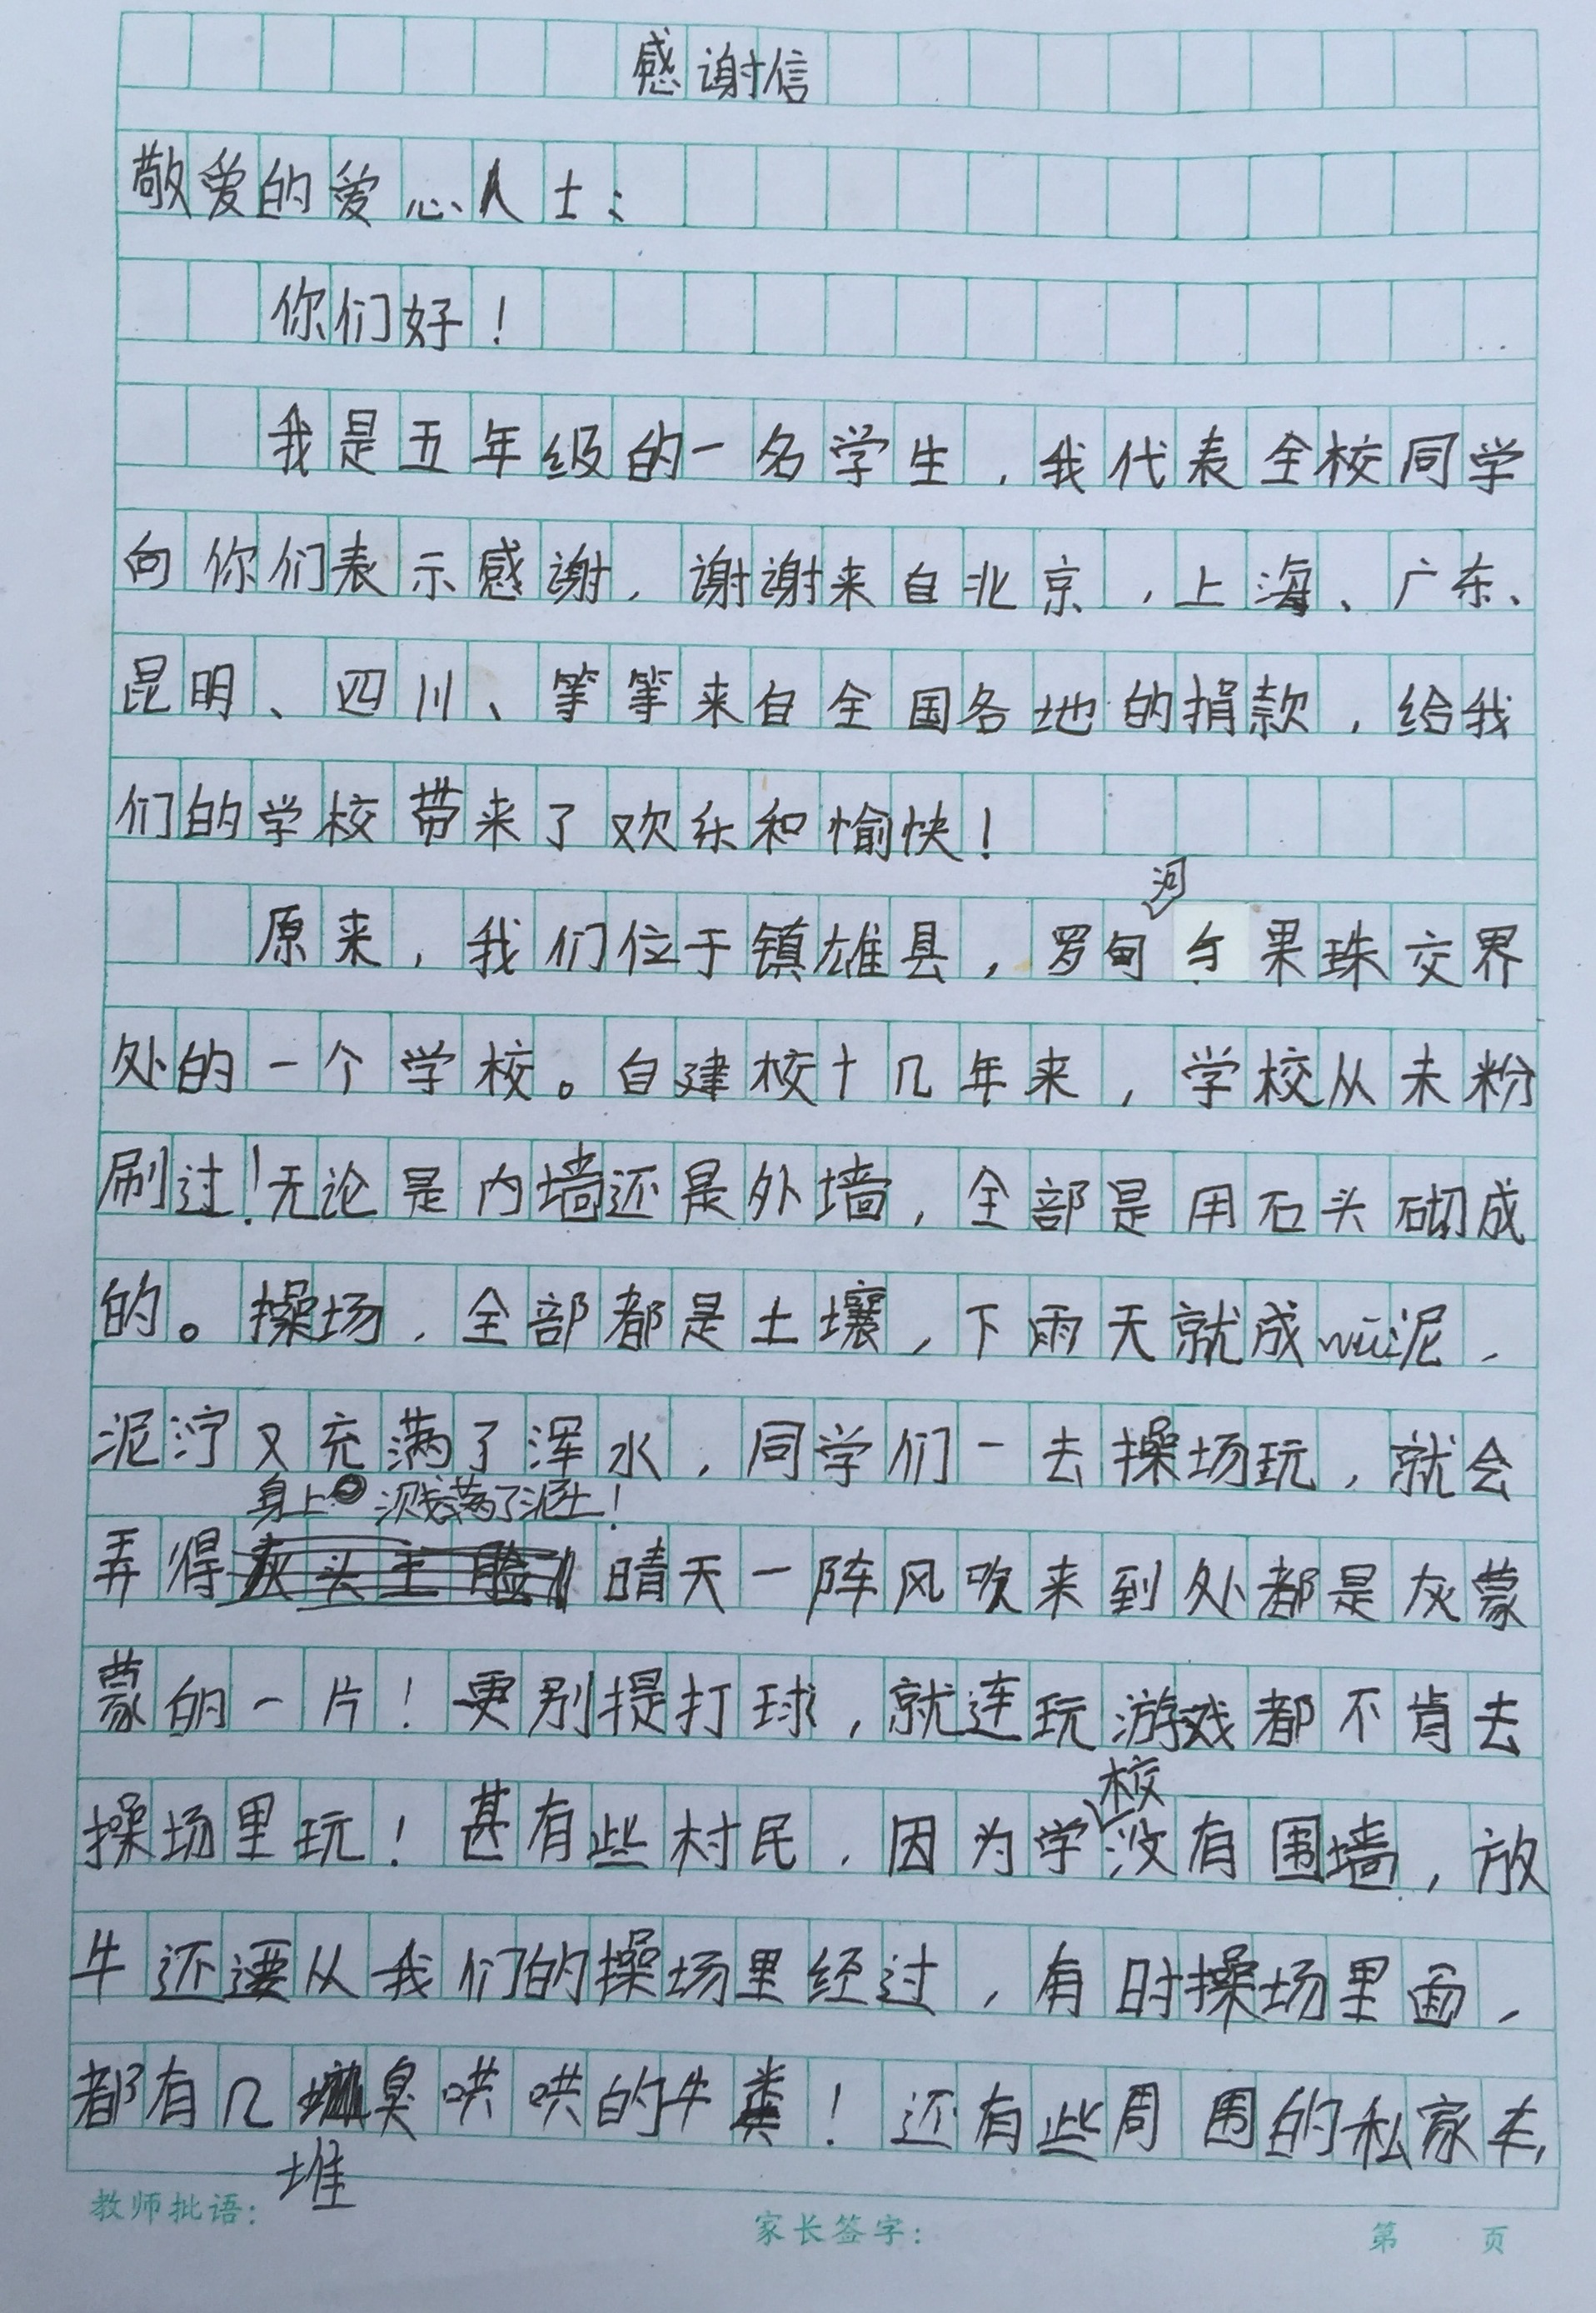 感谢信
敬爱的爱心人士：
你们好！
我是五年级的一名学生，我代表全校同学
向你们表示感谢，谢谢来自北京，上海、广东、
昆明、四川、等等来自全国各地的捐款，给我
们的学校带来了欢乐和愉快！
河
原来，我们位于镇雄县，罗甸与果珠交界
处的一个学校。自建校十几年来，学校从未粉
刷过！无论是内墙还是外墙，全部是用石头砌成
的。操场，全部都是土壤，下雨天就成wū泥，
泥泞又充满了浑水，同学们一去操场玩，就会
身上溅满了泥土！
弄得灰头土脸 晴天一阵风吹来到处都是灰蒙
蒙的一片！更别提打球，就连玩游戏都不肯去
校
操场里玩！甚有些村民，因为学没有围墙，放
牛还要从我们的操场里经过，有时操场里面，
都有几臭哄哄的牛粪！还有些周围的私家车，
堆
教师批语：
家长签字：
第 页